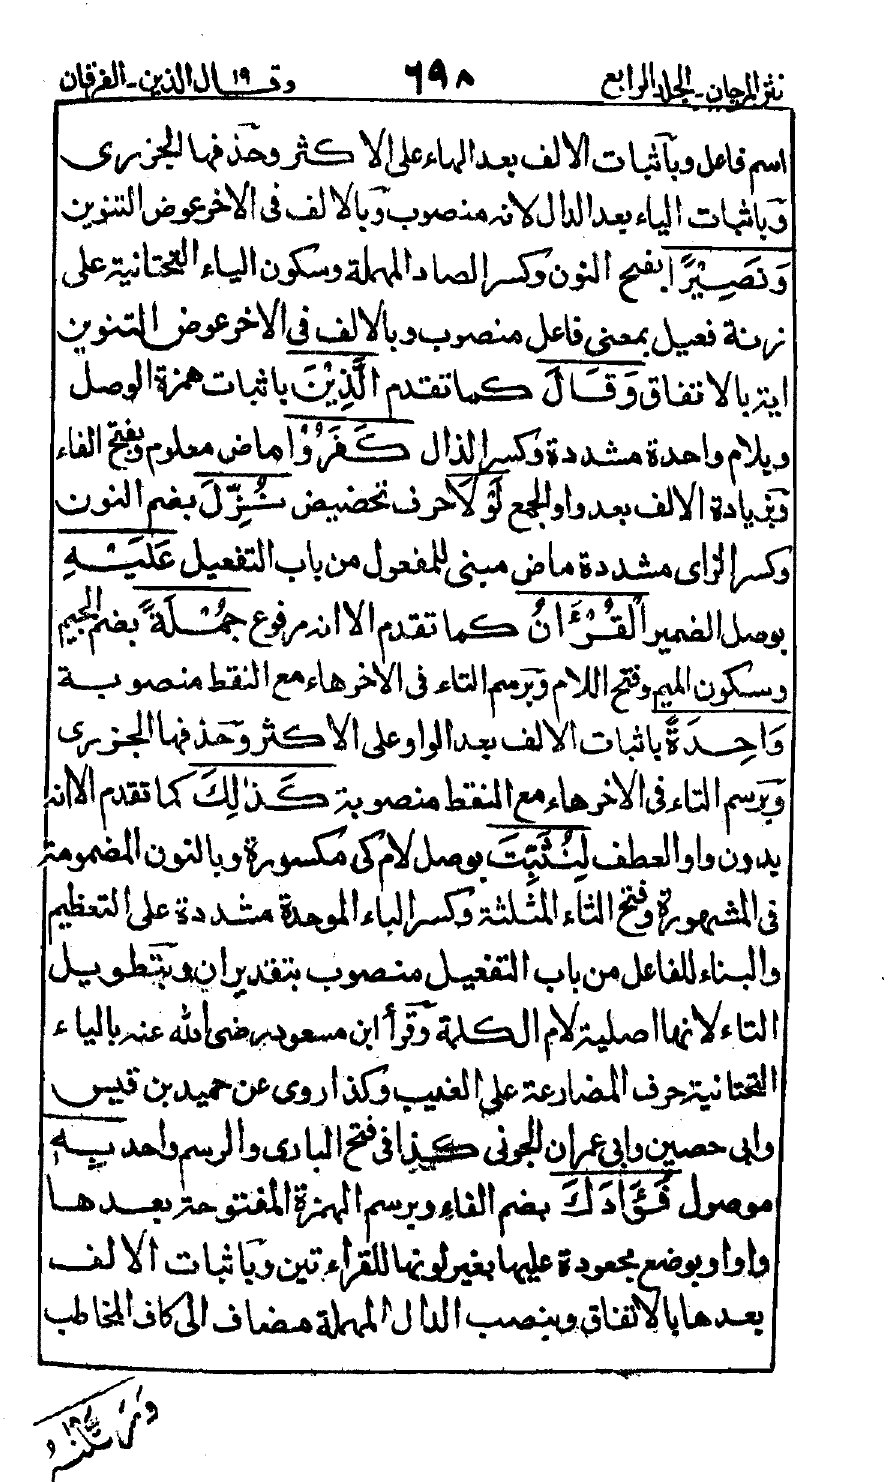 نثر المرجان - الجلد الرابع ٦٩٨ وقال الذين ١٩ - الفرقان
اسم فاعل وبآثبات الالف بعد الهاء على الاكثر وحذفها الجزرى
وباثبات الياء بعد الدال لانه منصوب وبالالف فى الاخر عوض التنوين
وَنَصِيْرًا بفتح النون وكسر الصاد المهملة وسكون الياء التحتانية على
زنة فعيل بمعنى فاعل منصوب وبالالف فى الاخر عوض التنوين
ايتہ بالاتفاق وَقَالَ كما تقدم الَّذِيْنَ باثبات همزة الوصل
وبلام واحدة مشددة وكسر الذال كَفَرُوْا ماض معلوم وبفتح الفاء
وبزيادة الالف بعد واو الجمع لَوْلَا حرف تحضيض نُزِّلَ بضم النون
وكسر الزاى مشددة ماض مبنى للمفعول من باب التفعيل عَلَيْهِ
بوصل الضمير الْقُرْءَانُ كما تقدم الا انه مرفوع جُمْلَةً بضم الجيم
وسكون الميم وفتح اللام وبرسم التاء فى الاخر هاء مع النقط منصوبة
وَاحِدَةً باثبات الالف بعد الواو على الاكثر وحذفها الجزرى
وبرسم التاء فى الاخر هاء مع النقط منصوبة كَذٰلِكَ كما تقدم الا انه
بدون واو العطف لِنُثَبِّتَ بوصل لام كى مكسورة وبالنون المضمومة
فى المشهورة وفتح الثاء المثلثة وكسر الباء الموحدة مشددة على التعظيم
والبناء للفاعل من باب التفعيل منصوب بتقدير ان وبتطويل
التاء لانها اصلية لام الكلمة وقرأ ابن مسعود رضى الله عنه بالياء
التحتانية حرف المضارعة على الغيب وكذا روى عن حميد بن قيس
وابى حصين وابى عمران الجونى كذا فى فتح البارى والرسم واحد بِهٖ
موصول فُؤَادَكَ بضم الفاء وبرسم الهمزة المفتوحة بعدها
واوا وبوضع مجعودة عليها بغير لونها للقراءتين وباثبات الالف
بعدها بالاتفاق وبنصب الدال المهملة مضاف الى كاف المخاطب
وَرَتَّلْنٰهُ